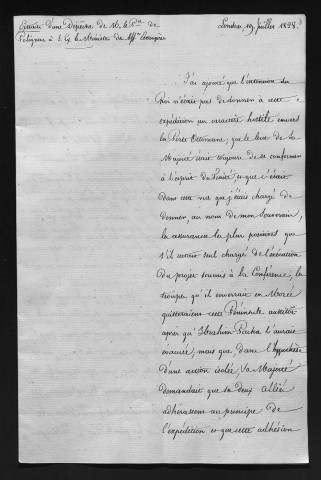 Extrait d'une Dépêche de M. le P.ce de
Polignac à S. E. le Ministre des Aff.es Etrangères
Londres 19 Juillet 1828.
J'ai ajouté que l'intention du
Roi n'était pas de donner à cette
expédition un caractère hostile envers
la Porte Ottomane; que le but de Sa
Majesté était toujours de se conformer
à l'esprit du Traité; et que c'était
dans cette vue que j'étais chargé de
donner, au nom de mon Souverain,
les assurances les plus positives que
s'il restait seul chargé de l'exécution
du projet soumis à la Conférence, les
troupes qu'il enverrait en Morée
quitteraient cette Péninsule aussitôt
après qu'Ibrahim Pacha l'aurait
évacuée; mais que, dans l'hypothèse
d'une action isolée, Sa Majesté
demandait que ses deux Alliés
adhérassent au principe de
l'expédition et que cette adhésion